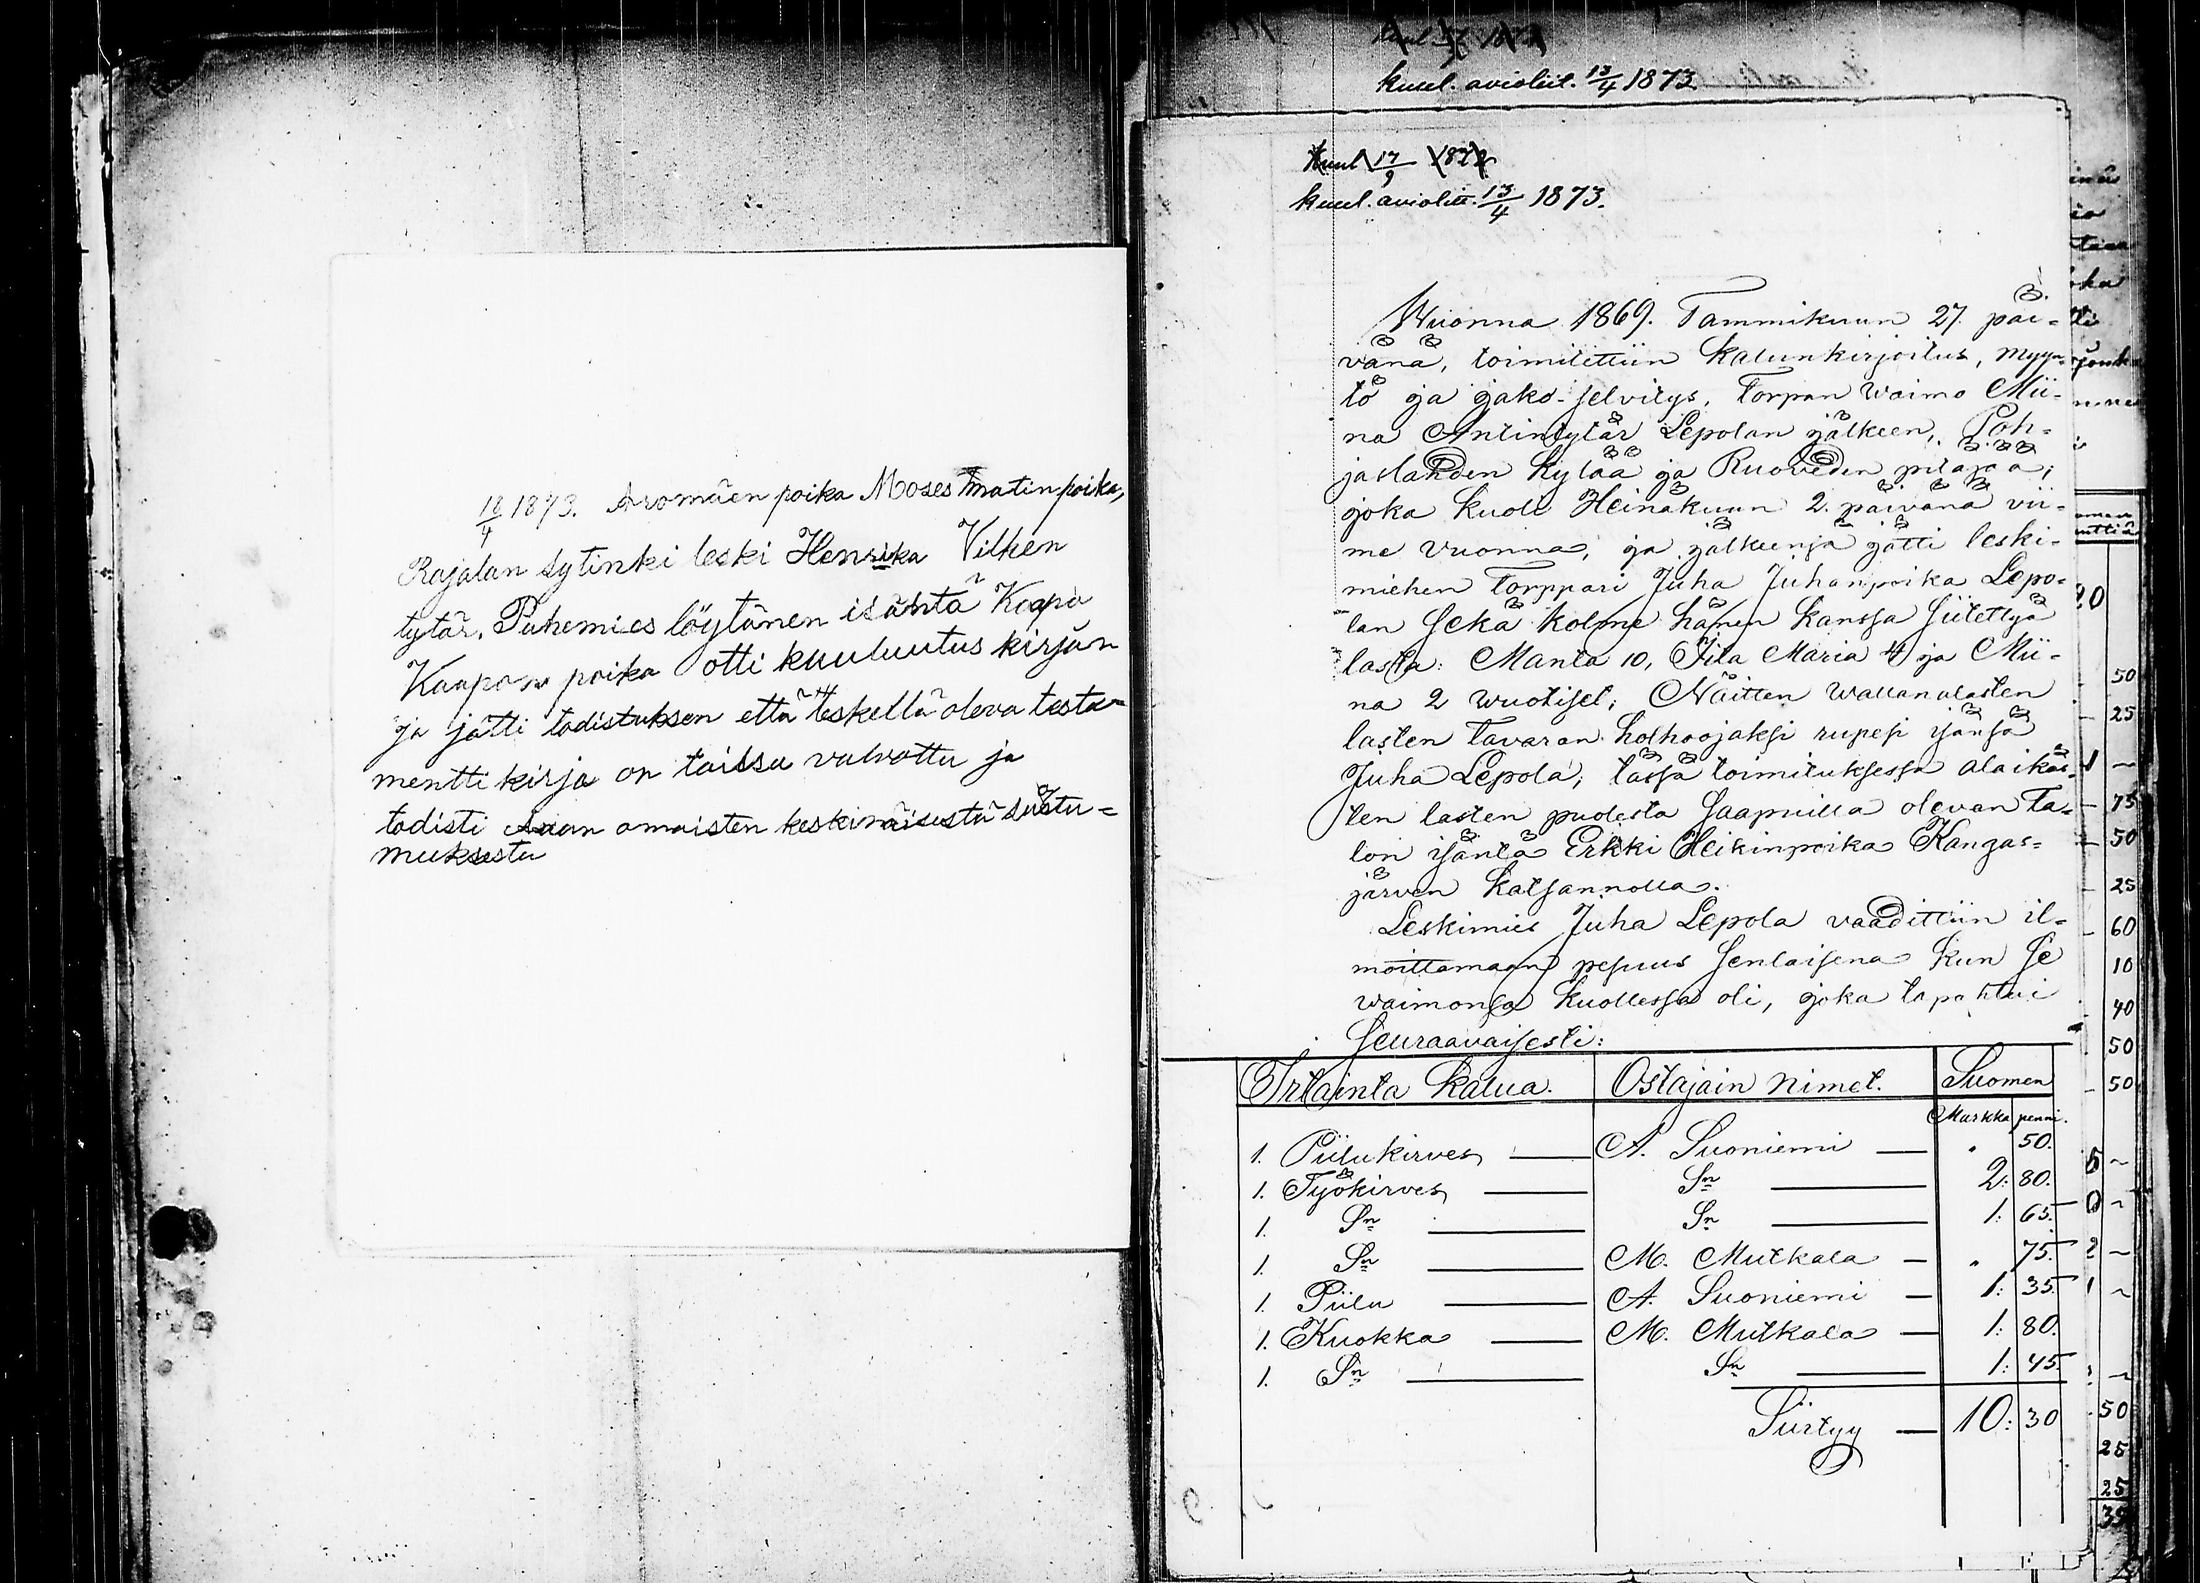 18/4 1873. Aromäen poika Moses matinpoika,
Rajalan sytinki leski Henrika Vilhen
tytär. Puhemies löytänen isäntä Kaapo
Kaapon poika otti kuulutus kirjan
ja jätti todistuksen että leskellä oleva testa-
mentti kirja on taissa valvottu ja
todisti asian omaisten keskinäisestä suostu=
muksesta
kuul. avioliit. 13/4 1873.
Kuul 17/9 1872
kuul. avioliit. 13/4 1873.
Wuonna 1869. Tammikuun 27. päi-
vänä, toimitettiin Kalunkirjoitus, myyn-
tö ja jako-selvitys, Torpan Waimo Mii-
na Antintytär Lepolan jälkeen, Poh-
jaslahden Kylää ja Ruoveden pitäjää,
joka Kuoli Heinäkuun 2. päivänä vii-
me vuonna, ja jälkeensä jätti leski-
miehen Torppari Juha Juhanpoika Lepo-
lan Sekä kolme hänen kanssa siitettyä
lasta: Manta 10, Fiia Maria 4 ja Mii-
na 2 wuotiset; Näitten wallanalasten
lasten Tavaran hoshoojaksi rupesi isänsä
Juha Lepola, tässä toimituksessa alaikäs-
ten lasten puolesta saapuilla olevan Ta-
lon isäntä Erkki Heikinpoika Kangas=
järven Katsannolla.
Leskimies Juha Lepola vaadittiin il=
moittamaan pesuus senlaisena Kun se
waimonsa Kuollessa oli, joka tapahtui
Seuraavaisesti:
Irtainta Kalua. Ostajain Nimet. Suomen
Markka penni.
1. Piilukirves — A. Suoniemi — " 50.
1. Työkirves — Sn — 2: 80.
1. Sn — Sn — 1: 65.
1. Sn — M. Mutkala — " 75.
1. Piilu — A. Suoniemi — 1: 35.
1. Kuokka — M. Mutkala — 1: 80.
1. Sn — Sn — 1: 45.
Siirtyy — 10: 30